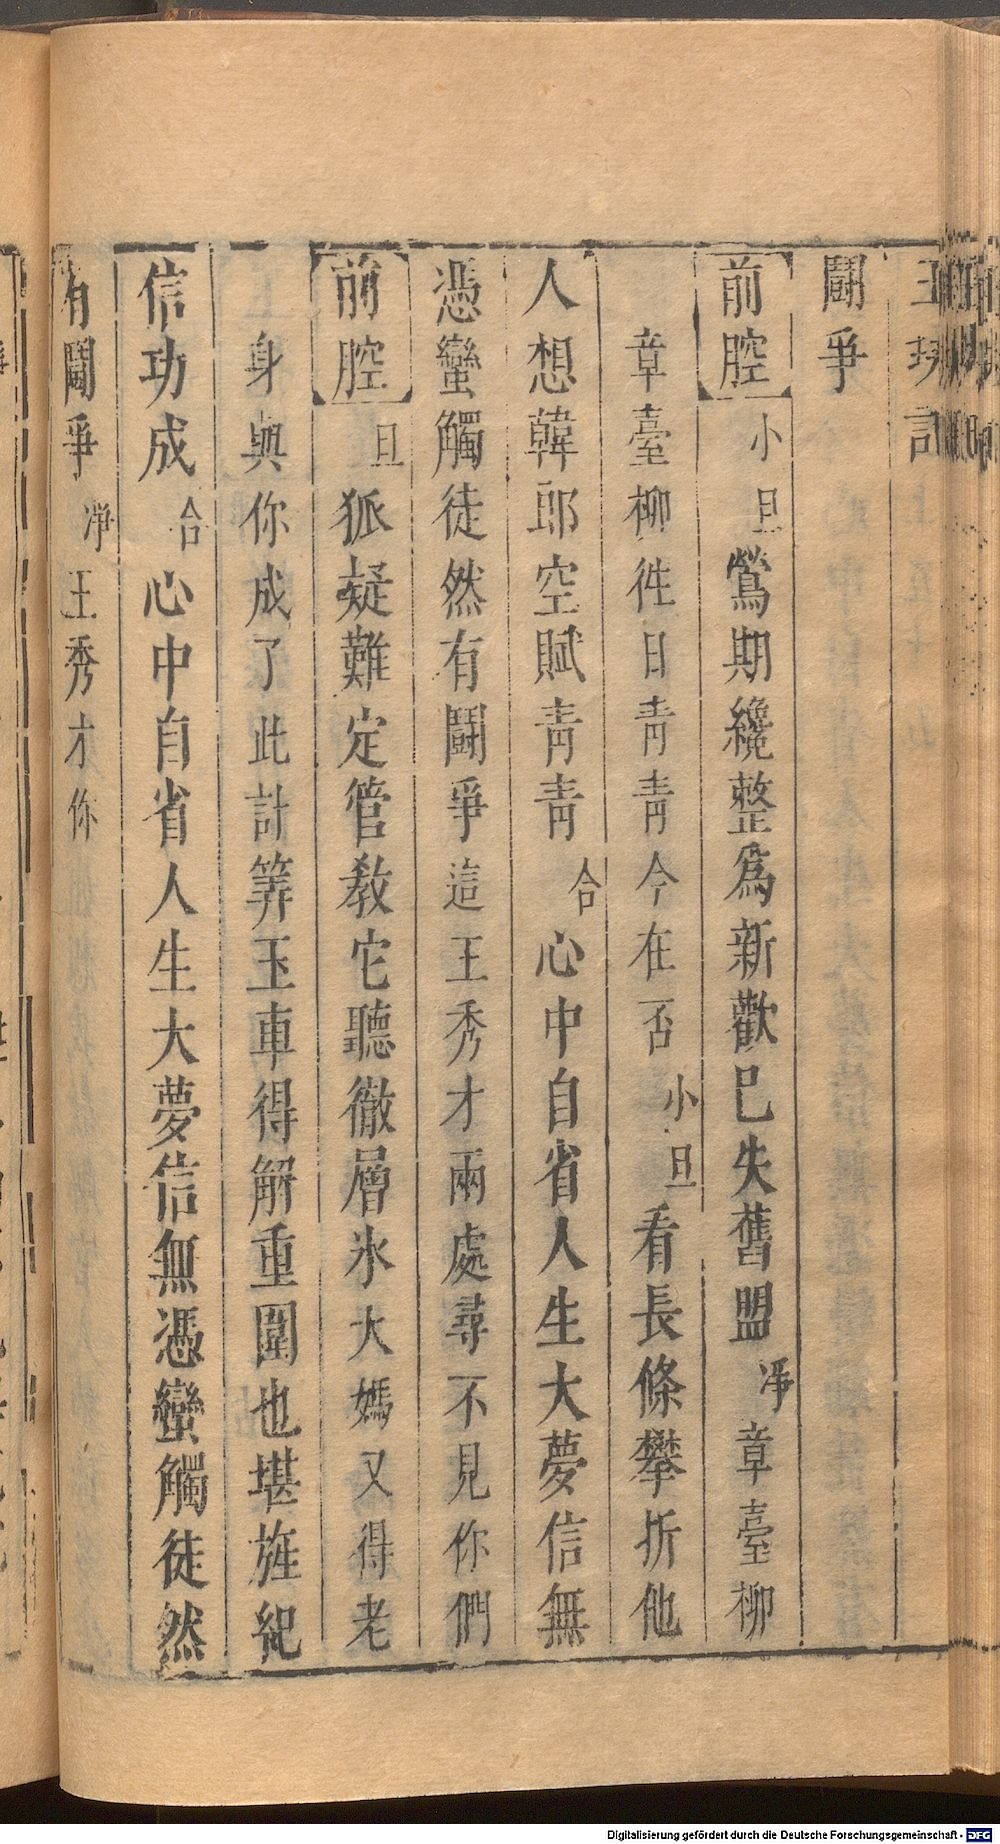 玉玦記
鬪爭
前腔 小旦 鶯期纔整爲新歡已失舊盟 凈 章臺柳
章臺柳徃日青青今在否 小旦 看長條攀折他
人想韓郎空賦青青 合 心中自省人生大夢信無
憑蠻觸徒然有鬪爭 這王秀才兩處尋不見你們
前腔 旦 狐疑難定管教它聽徹層氷 大媽又得老
身與你成了此計 筭玉車得解重圍也堪旌紀
信功成 合 心中自省人生大夢信無憑蠻觸徒然
有鬪爭 凈 王秀才你
Digitalisierung gefördert durch die Deutsche Forschungsgemeinschaft - DFG